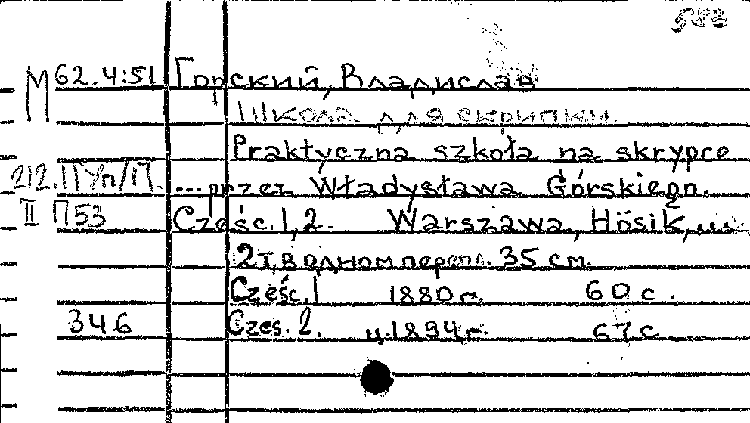 М 62.4:51 Горский, Владислав
Школа для скрипки.
Praktyczna szkoła na skrypce
212.ПУп/П. ...przez Władysława Górskiego.
II П53 Cześć.1,2. Warszawa, Hösik,
2 т. в одном перепл. 35 см.
Cześć.1 1880 г. 60 с.
346 Czes.2. ц.1894 г. 67 с